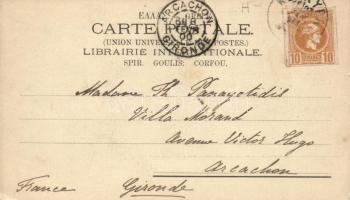 ΕΛΛ
CARTE POSTALE.
(UNION UNIVERSELLE DES POSTES.)
LIBRAIRIE INTERNATIONALE
SPIR. GOULIS: CORFOU.
ARCACHON
GIRONDE
10 10
Madame Th Panayotidis
Villa Morand
Avenue Victor Hugo
Arcachon
France Gironde